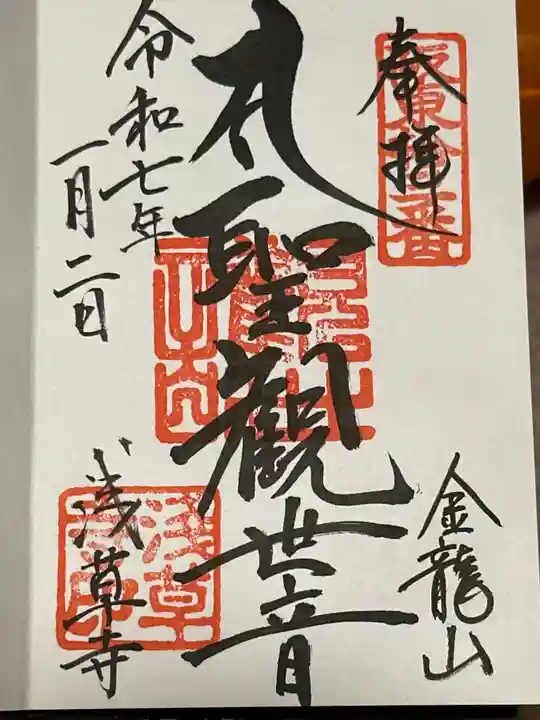 奉拝
坂東拾三番
金龍山
聖観世音
令和七年
一月二日
浅草寺